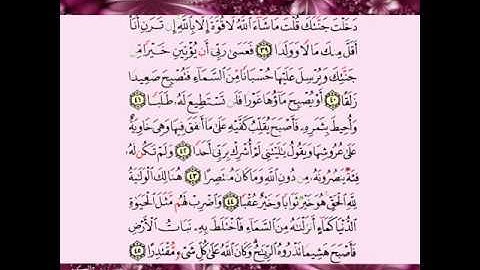 دَخَلْتَ جَنَّتَكَ قُلْتَ مَا شَآءَ ٱللَّهُ لَا قُوَّةَ إِلَّا بِٱللَّهِ إِن تَرَنِ أَنَا۠
أَقَلَّ مِنكَ مَالًا وَوَلَدًا ٣٩ فَعَسَىٰ رَبِّىٓ أَن يُؤْتِيَنِ خَيْرًا مِّن
جَنَّتِكَ وَيُرْسِلَ عَلَيْهَا حُسْبَانًا مِّنَ ٱلسَّمَآءِ فَتُصْبِحَ صَعِيدًا
زَلَقًا ٤٠ أَوْ يُصْبِحَ مَآؤُهَا غَوْرًا فَلَن تَسْتَطِيعَ لَهُۥ طَلَبًا ٤١
وَأُحِيطَ بِثَمَرِهِۦ فَأَصْبَحَ يُقَلِّبُ كَفَّيْهِ عَلَىٰ مَآ أَنفَقَ فِيهَا وَهِىَ خَاوِيَةٌ
عَلَىٰ عُرُوشِهَا وَيَقُولُ يَٰلَيْتَنِى لَمْ أُشْرِكْ بِرَبِّىٓ أَحَدًا ٤٢ وَلَمْ تَكُن لَّهُۥ
فِئَةٌ يَنصُرُونَهُۥ مِن دُونِ ٱللَّهِ وَمَا كَانَ مُنتَصِرًا ٤٣ هُنَالِكَ ٱلْوَلَٰيَةُ
لِلَّهِ ٱلْحَقِّ هُوَ خَيْرٌ ثَوَابًا وَخَيْرٌ عُقْبًا ٤٤ وَٱضْرِبْ لَهُم مَّثَلَ ٱلْحَيَوٰةِ
ٱلدُّنْيَا كَمَآءٍ أَنزَلْنَٰهُ مِنَ ٱلسَّمَآءِ فَٱخْتَلَطَ بِهِۦ نَبَاتُ ٱلْأَرْضِ
فَأَصْبَحَ هَشِيمًا تَذْرُوهُ ٱلرِّيَٰحُ وَكَانَ ٱللَّهُ عَلَىٰ كُلِّ شَىْءٍ مُّقْتَدِرًا ٤٥